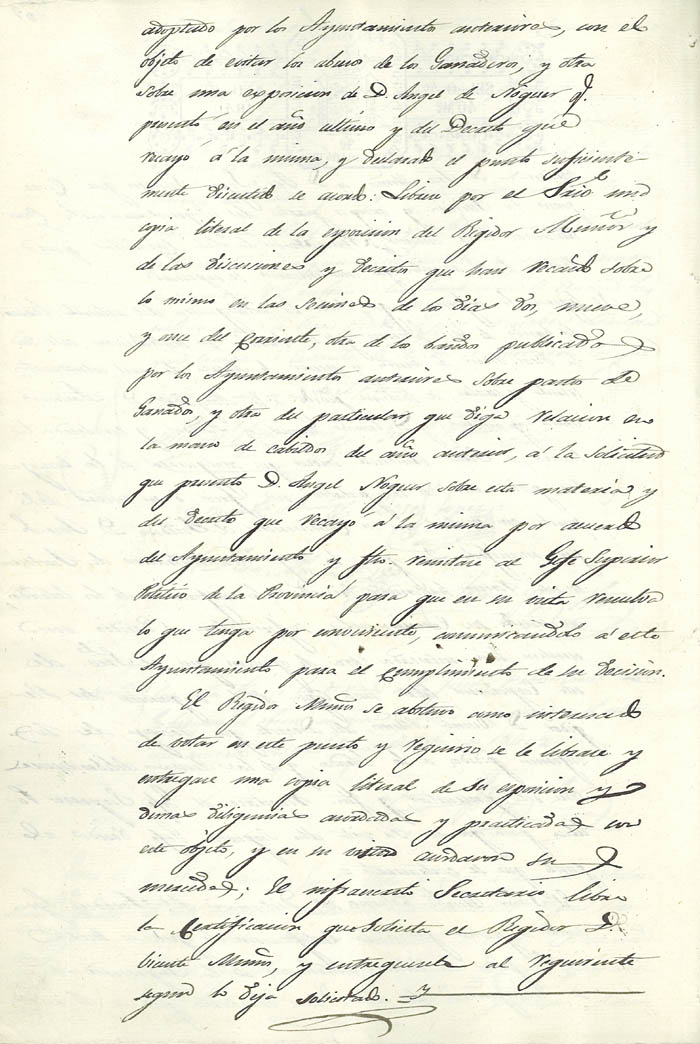 adoptado por los Ayuntamientos anteriores, con el
objeto de evitar los abusos de los Ganaderos; y otra
sobre una exposicion de D. Angel de Noguer q.
presentó en el año ultimo y del Decreto que
recayó á la misma, y declarado el punto suficiente-
mente discutido se acordó: Librese por el Srio. una
copia literal de la exposicion del Regidor Muñoz y
de las discusiones y decretos que han recaido sobre
lo mismo en las sesiones de los dias dos, nueve,
y once del corriente, otra de los bandos publicados
por los Ayuntamientos anteriores sobre pastos de
Ganados, y otra del particular que diga relacion en
la mano de cabildos del año anterior, á la solicitud
que presentó D. Angel Noguer sobre esta materia y
del Decreto que recayó á la misma por acuerdo
del Ayuntamiento y fho. remitase al Gefe Superior
Politico de la Provincia para que en su vista resuelva
lo que tenga por conveniente, comunicandolo á este
Ayuntamiento para el cumplimiento de su decision.
El Regidor Muñoz se abstuvo como interesado
de votar en este punto y requirio se le librase y
entregase una copia literal de su esposicion y
demas diligencias acordadas y practicadas con
este objeto, y en su vista acordaron sus
mercedes; El infraescrito Secretario libre
la Certificacion que solicita el Regidor D.
Vicente Muñoz, y entreguesela al requirente
segun lo deja solicitado.